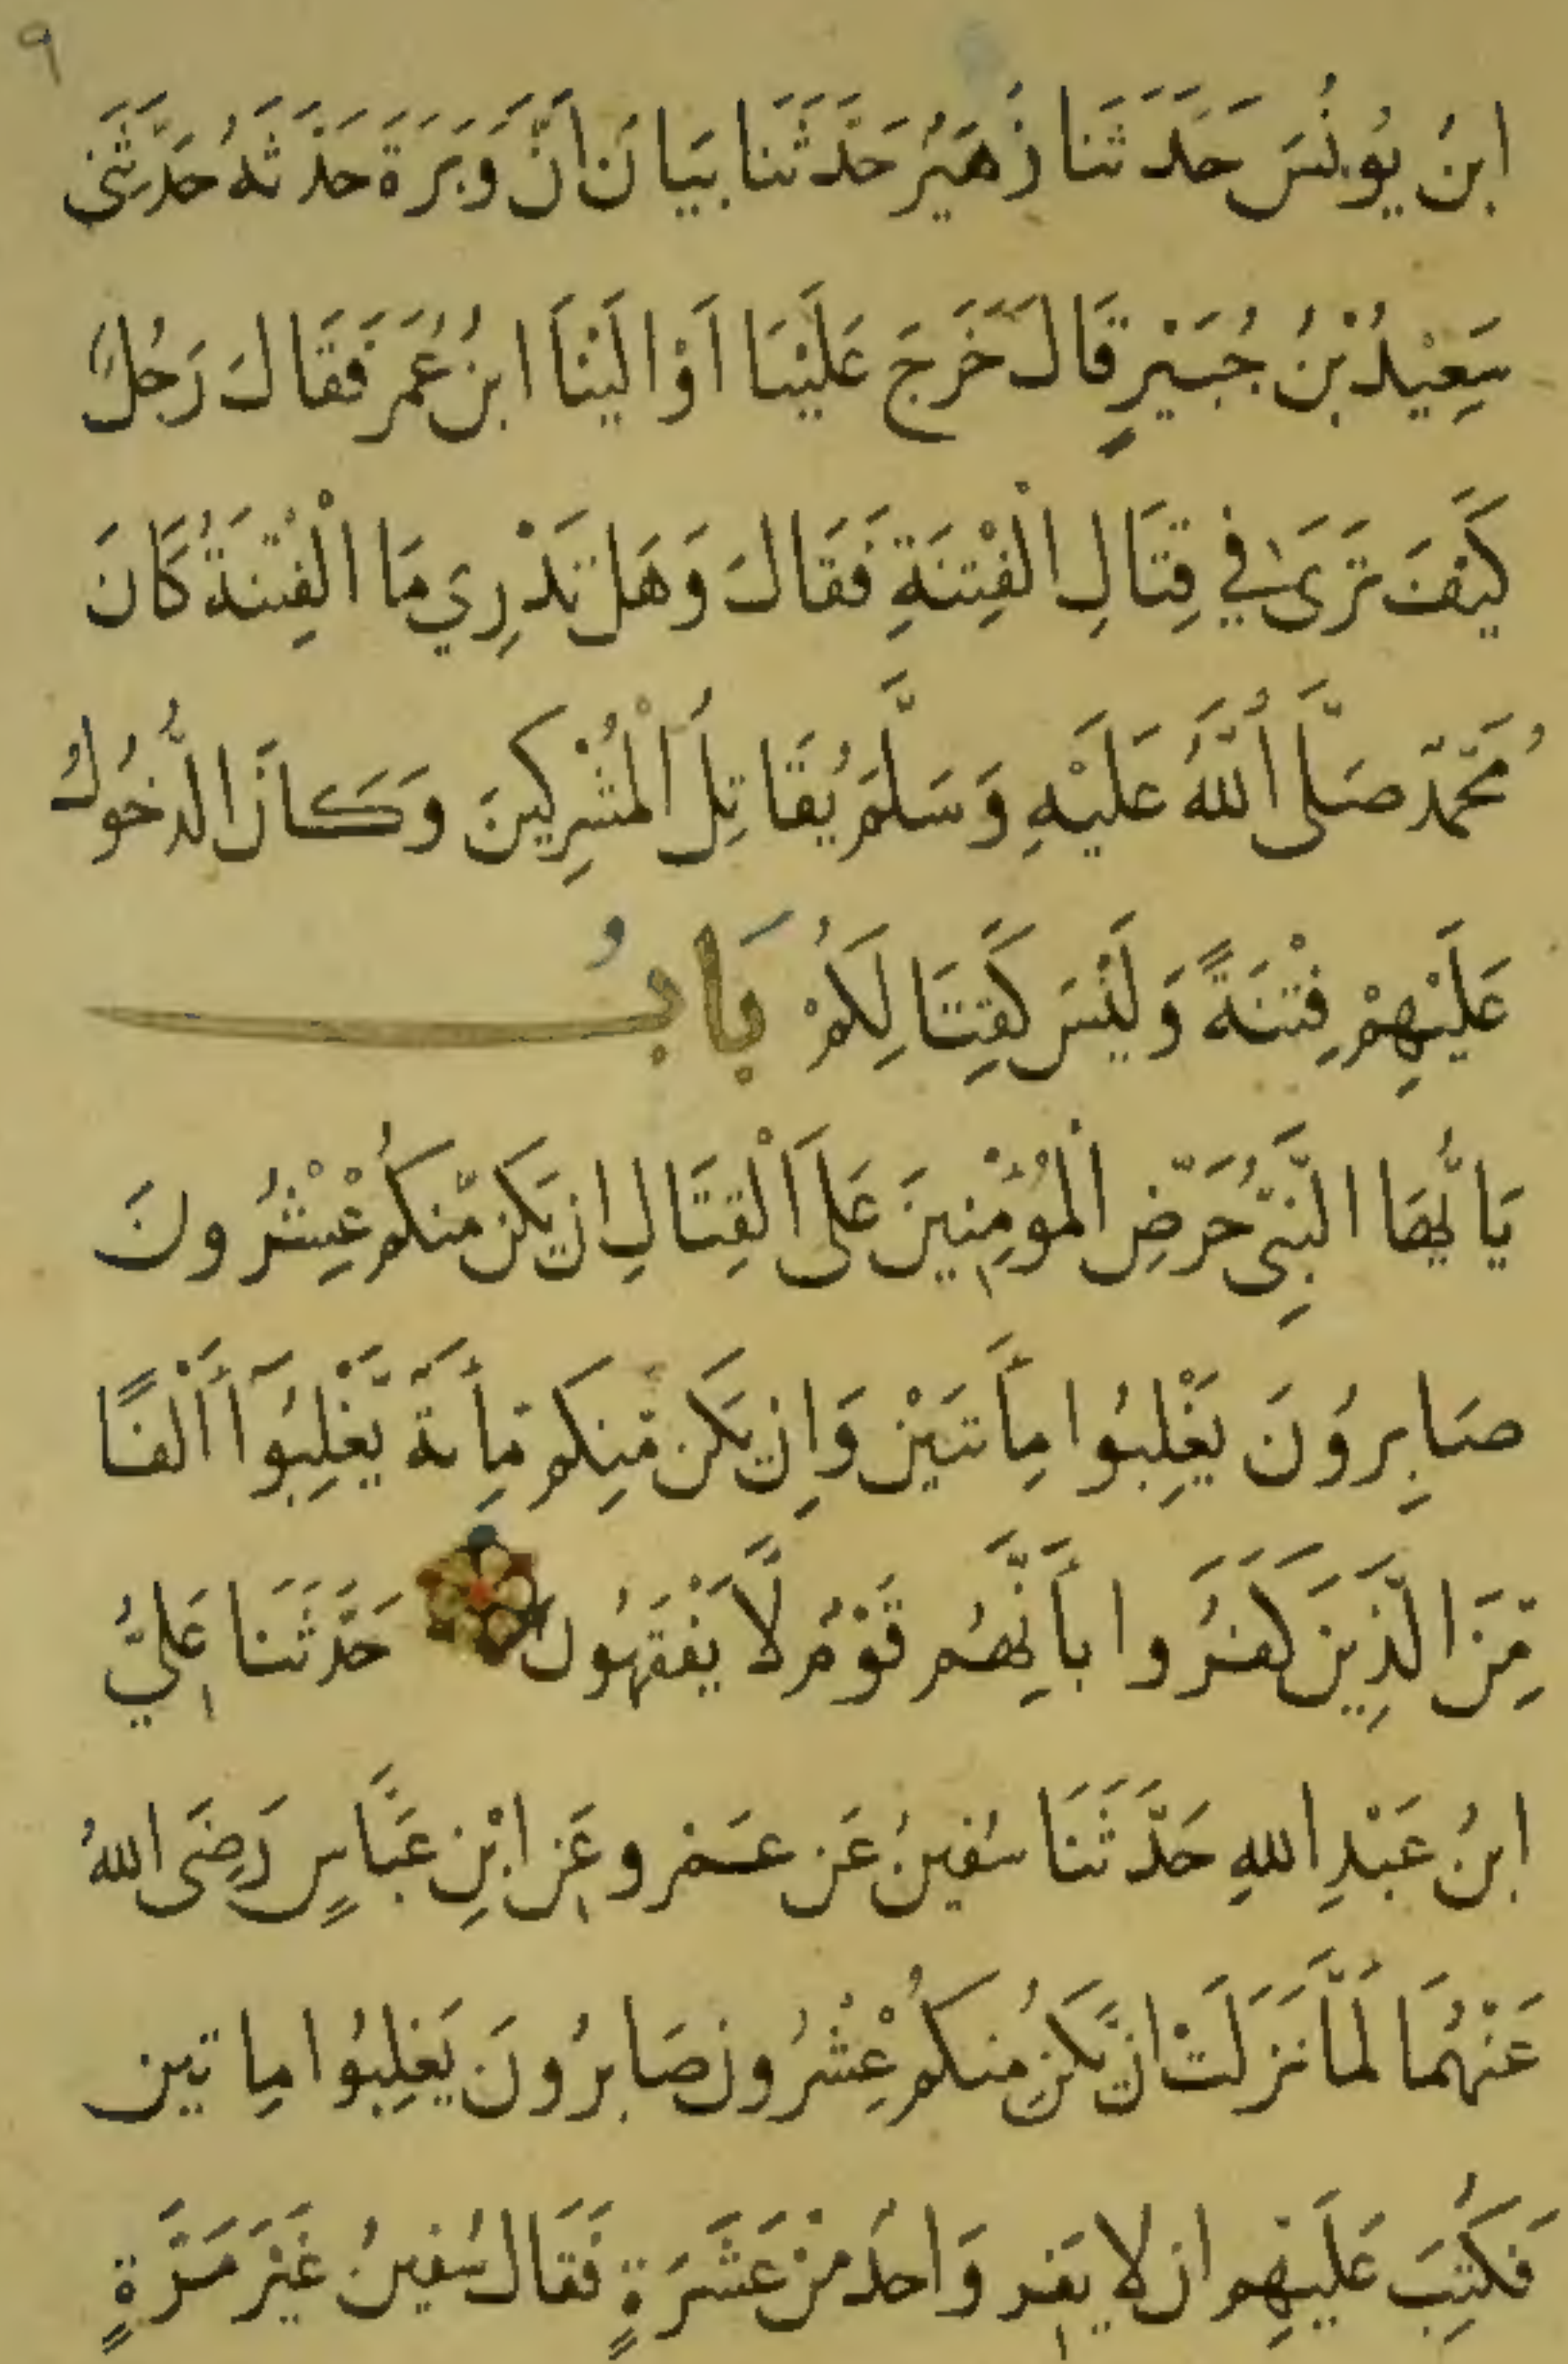 ٩
ابنُ يُونُسَ حَدَثَنا زُهَيْرُ حَدَّثَنا بَيَانَ انَّ وَبَرَةَ حَدَّثَهُ حَدَّثَنِى
سَعِيْدُ بْنُ جُبَيْرٍ قَالَ خَرَجَ عَلَيْنَا اَوْ اِلَيْنَا ابنُ عُمَرَ فَقَالَ رَجُلٌ
كَيْفَ تَرَى فِي قِتَالِ الْفِتْنَةِ فَقَالَ وَهَل تَدْرِي مَا الْفِتْنَةُ كَانَ
مُحَمَّدٌ صَلَّى اللّٰهُ عَلَيْهِ وَسَلَّمَ يُقَاتِلُ الْمُشْرِكِينَ وَكَانَ الدُّخُولُ
عَلَيْهِمْ فِتْنَةً وَلَيْسَ كَقِتَالِكُمْ بَابُ
يَا اَيُّهَا النَّبِىُّ حَرِّضِ الْمُؤْمِنِينَ عَلَى الْقِتَالِ ان يَكُن مِّنكُمْ عِشْرُونَ
صَابِرُونَ يَغْلِبُوا مِأَتَيْن وَاِن يَكُن مِّنكُم مِّأَةٌ يَّغْلِبُوٓا أَلْفًا
مِّنَ الَّذِينَ كَفَرُوا بأَنَّهُم قَوْمٌ لَّا يَفْقَهُونَ حَدَّثَنَا عَلِيُّ
ابنُ عَبْدِ اللهِ حَدَّثَنَا سُفينُ عَن عَمْرو عَن ابْنِ عَبَّاسٍ رَضِىَ اللهُ
عَنْهُمَا لَمَّا نَزَلَتْ ان يَّكُن مِنكُمْ عِشْرُونَ صَابرُونَ يَغلِبُوا مِاتين
فَكُتِبَ عَلَيْهِم ان لا يَفِر وَاحدٌ مِنْ عَشَرَةٍ فَقَالَ سُفينُ غَيْرَ مَرَّةٍ